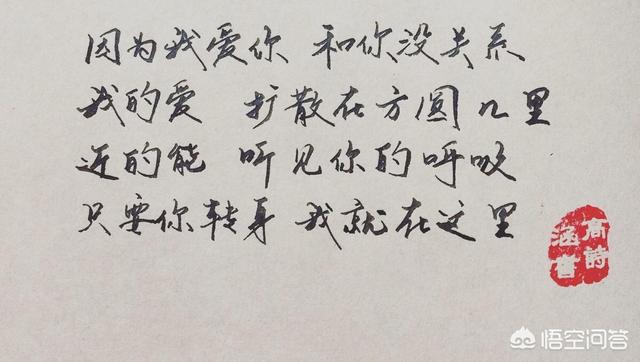 因为我爱你 和你没关系
我的爱 扩散在方圆几里
近的能 听见你的呼吸
只要你转身 我就在这里
高詩
涵書
悟空问答